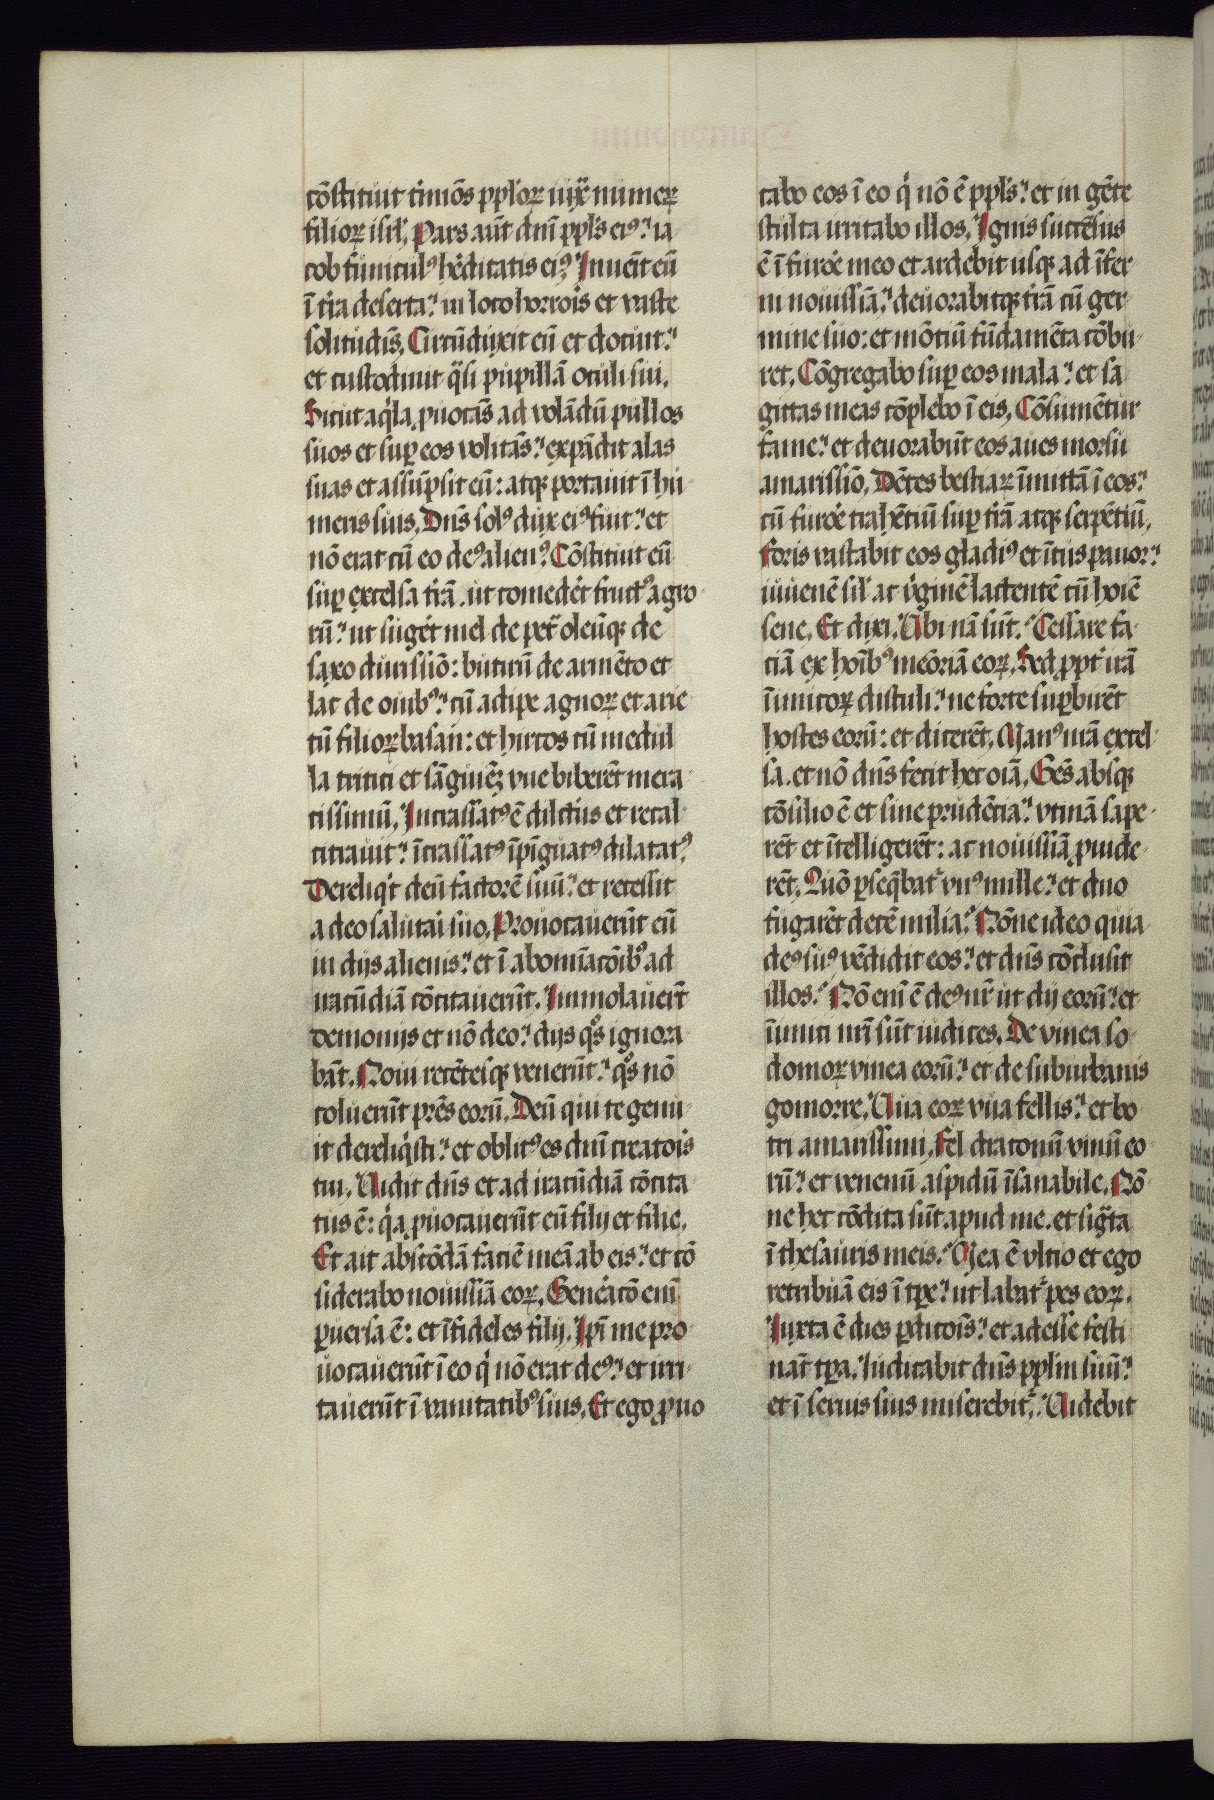 cōstituit t̾mīos pplōꝝ iux̄ numeꝝ
filioꝝ isrl̄, Pars aūt dnī ppl̄s eiꝰ: ia
cob funiculꝰ h̾editatis eiꝰ, Inuēit eū
ī tr̄a deserta: in loco horrois et vaste
solitudīs, Circūduxit eū et docuit:
et custodiuit qͣsi pupillā oculi sui,
Sicut aqͥla ꝓuocās ad volādū pullos
suos et suꝑ eos volitās: expādit alas
suas et assūpsit eū: atqꝫ portauit ī hu
meris suis, Dn̄s solꝰ dux eiꝰ fuit: et
nō erat cū eo deꝰ alienꝰ, Cōstituit eū
suꝑ excelsa tr̄ā. ut comedēt fructꝰ agro
rū: ut sugēt mel de petͣ oleūqꝫ de
saxo durissīo: butirū de armēto et
lac de ouibꝰ: cū adipe agnoꝝ et arie
tū filioꝝ basan: et hircos cū medul
la tritici et sāguiēꝫ vue biberēt mera
tissimū, Incrassatꝰ ē dilectus et recal
citrauit: īcrassatꝰ īpīguatꝰ dilatatꝰ,
Dereliqͥt deū factorē suū: et recessit
a deo salutaī suo, Prouocauerūt eū
in dijs alienis: et ī abomīacōibꝰ ad
iracūdiā cōcitauerūt, Immolauerūt
demonijs et nō deo: dijs qͦs ignora
bāt, Noui recētesqꝫ venerūt: qͦs nō
coluerūt pr̄es eorū, Deū qui te genu
it dereliqͥsti: et oblitꝰ es dnī creatois
tui, Uidit dn̄s et ad iracūdiā cōcita
tus ē: qͥa ꝓuocauerūt eū filij et filie,
Et ait abscōdā faciē meā ab eis: et cō
siderabo nouissīa eoꝝ, Gen̾acō enī
ꝑuersa ē: et īfideles filij, Ipī me pro
uocauerūt ī eo qͥ nō erat deꝰ: et irri
tauerūt ī vanitatibꝰ suis, Et ego ꝓuo
cabo eos ī eo qͥ nō ē ppl̄s: et in gēte
stulta irritabo illos, Ignis succēsus
ē ī furōe meo et ardebit usqꝫ ad īfer
ni nouissīa: deuorabitqꝫ tr̄ā cū ger
mine suo: et mōtiū fūdamēta cōbu
ret, Cōgregabo suꝑ eos mala: et sa
gittas meas cōplebo ī eis, Cōsumētur
fame: et deuorabūt eos aues morsu
amarissīo, Dētes bestiaꝝ īmittā ī eos:
cū furōe trahētiū suꝑ tr̄ā atqꝫ serpētiū,
Foris vastabit eos gladiꝰ et ītus pauor:
iuuenē sil̄ ac v̾ginē lactentē cū hoīe
sene, Et dixi, Ubi nā sūt, Cessare fa
ciā ex hoībꝰ memōriā eoꝝ, Sed ꝓpt̾ irā
īimicoꝝ distuli: ne forte suꝑbirēt
hostes eorū: et dicerēt, Manꝰ nr̄ā excel
sa. et nō dn̄s fecit hec oīa, Gēs absqꝫ
cōsilio ē et sine prudētia: vtinā sape
rēt et ītelligerēt: ac nouissīa ꝓuide
rēt, Quō ꝑseqͤbat̾ vnꝰ mille: et duo
fugarēt decē milia, Nōne ideo quia
deꝰ suꝰ vēdidit eos: et dn̄s cōclusit
illos, Nō enī ē deꝰ nr̄ ut dij eorū: et
īimici nr̄i sūt iudices, De vinea so
domoꝝ vinea eorū: et de suburbanis
gomorre, Uua eoꝝ vua fellis: et bo
tri amarissimi, Fel draconū vinū eo
rū: et venenū aspidū īsanabile, Nō
ne hec cōdita sūt apud me. et sigͣta
ī thesauris meis, Mea ē vltio et ego
retribuā eis ī tꝑe: ut labat̾ pes eoꝝ,
Iuxta ē dies ꝑditoīs: et adesse festi
nāt tꝑa, Iudicabit dn̄s pplm suū:
et ī seruis suis miserebit̾, Uidebit